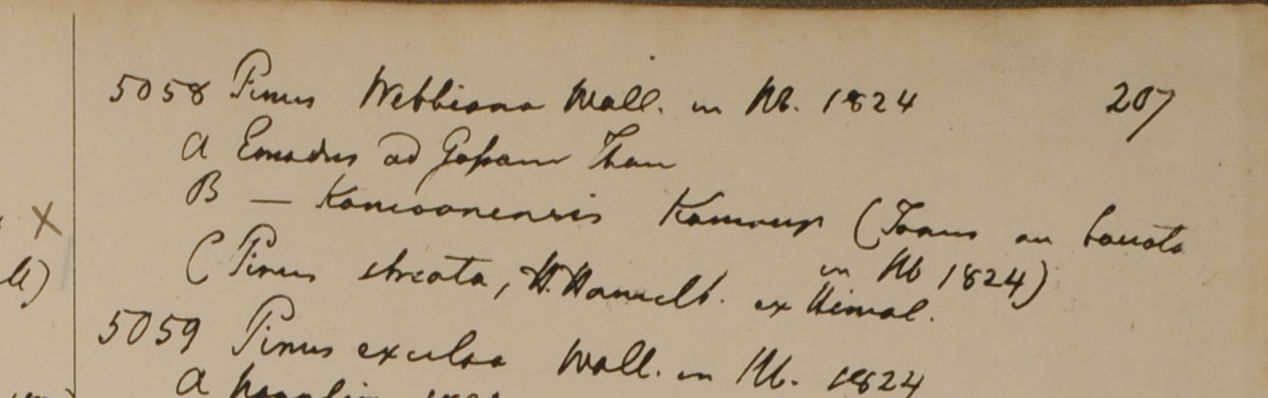 5058 Pinus Webbiana Wall. in Hb. 1824 207
A Emodus ad Gossain Than
B — Kamaonensis Kamoup (Taxus an baccata
in Hb 1824)
C Pinus striata, H. Hamilt. ex Himal.
5059 Pinus excelsa Wall. in Hb. 1824
A
X